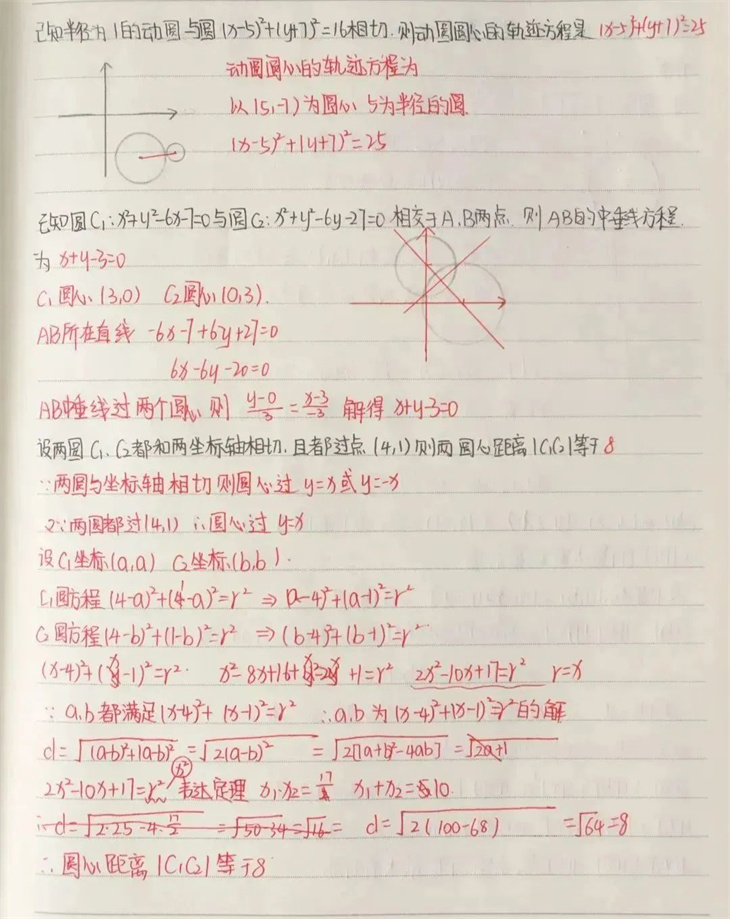 已知半径为1的动圆与圆(x-5)²+(y+7)²=16相切.则动圆圆心的轨迹方程是 (x-5)²+(y+7)²=25
动圆圆心的轨迹方程为
以(5,-7)为圆心 5为半径的圆.
(x-5)²+(y+7)²=25
已知圆C₁:x²+y²-6x-7=0与圆C₂:x²+y²-6y-27=0 相交于A,B两点 则AB的中垂线方程
为 x+y-3=0
C₁圆心(3,0) C₂圆心(0,3).
AB所在直线 -6x-7+6y+27=0
6x-6y-20=0
AB中垂线过两个圆心 则 (y-0)/3=(x-3)/-3 解得 x+y-3=0
设两圆C₁、C₂都和两坐标轴相切.且都过点(4,1)则两圆心距离|C₁C₂|等于8
∵两圆与坐标轴相切则圆心过 y=x或y=-x
又∵两圆都过(4,1) ∴圆心过y=x
设C₁坐标(a,a) C₂坐标(b,b).
C₁圆方程(4-a)²+(1-a)²=r² ⇒ (a-4)²+(a-1)²=r²
C₂圆方程(4-b)²+(1-b)²=r² ⇒ (b-4)²+(b-1)²=r²
(x-4)²+(x-1)²=r². x²-8x+16+x²-2x+1=r² 2x²-10x+17=r² r=x
∵a,b都满足(x-4)²+(x-1)²=r² ∴a,b为(x-4)²+(x-1)²=r²的解
d=√(a-b)²+(a-b)² =√2(a-b)² =√2[(a+b)²-4ab] =√2a+1
2x²-10x+17=r² x² 韦达定理 x₁·x₂=17 x₁+x₂=10.
∴d=√2·25-4·17/2 =√50-34=√16= d=√2(100-68) =√64=8
∴圆心距离|C₁C₂|等于8